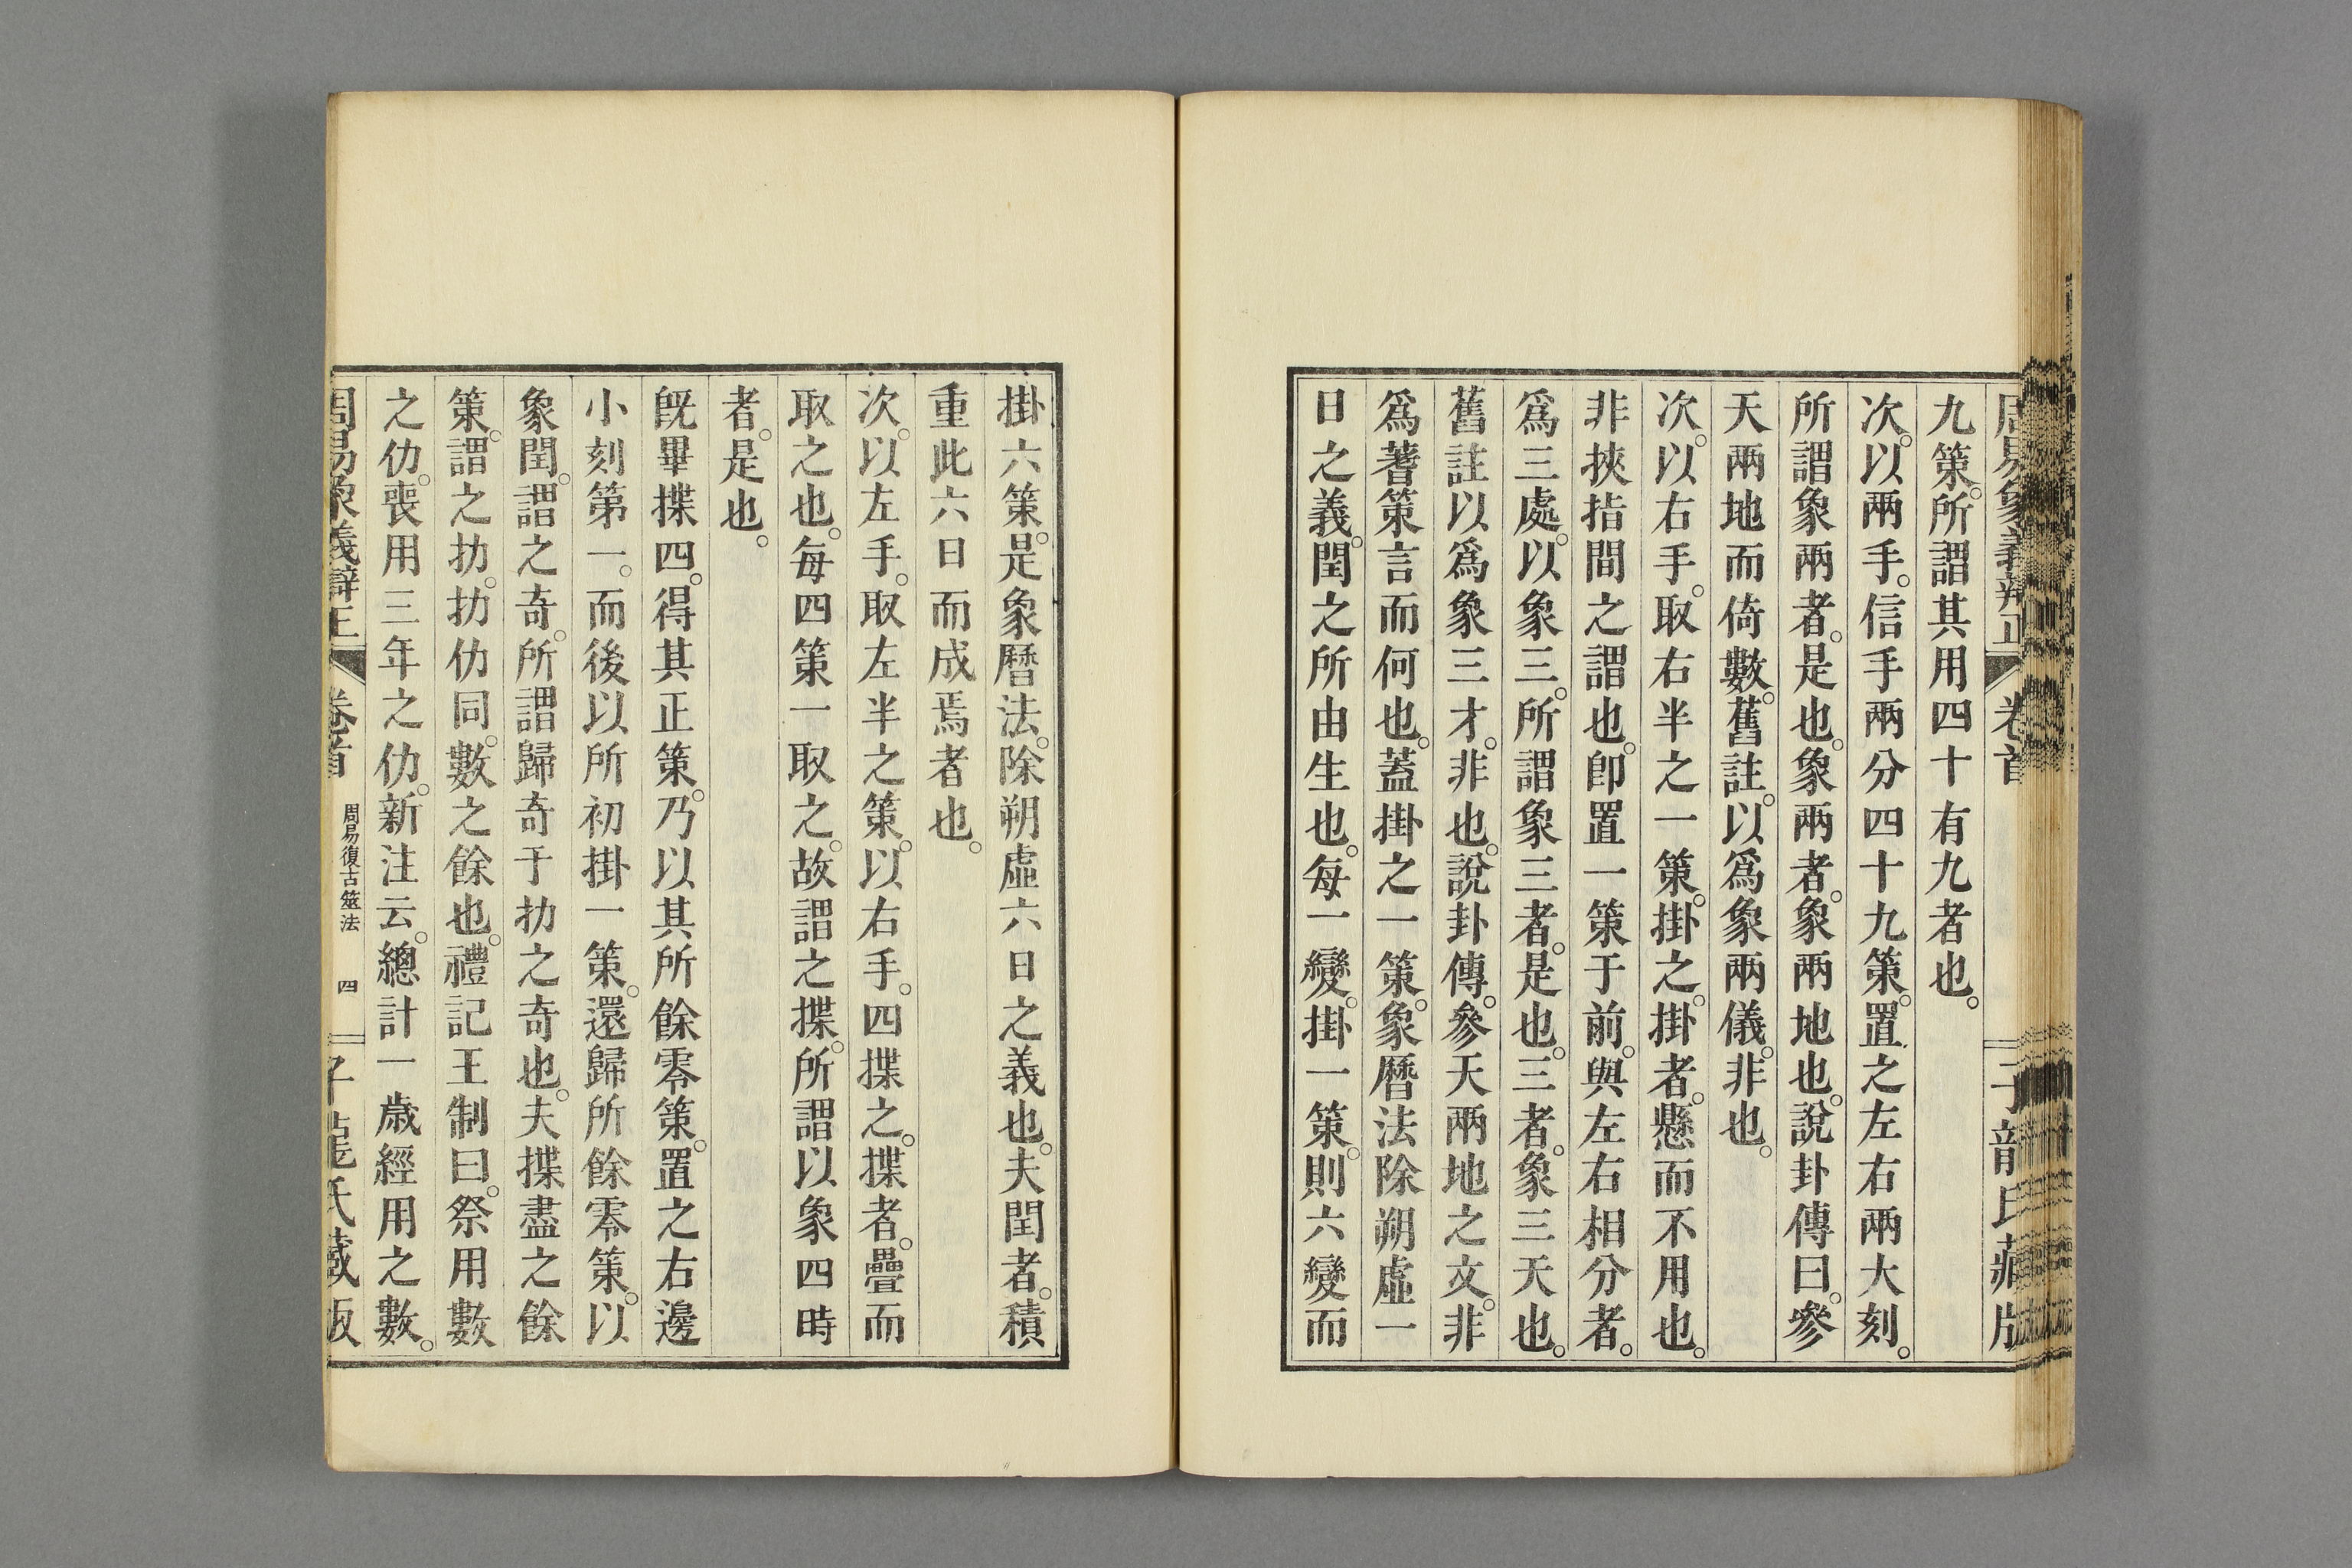 周易象義辨正 卷首 子龍氏藏版
九策。所謂其用四十有九者也。
次。以兩手。信手兩分四十九策。置之左右兩大刻。
所謂象兩者。是也。象兩者。象兩地也。說卦傳曰。參
天兩地而倚數。舊註。以爲象兩儀。非也。
次。以右手。取右半之一策。掛之。掛者。懸而不用也。
非挾指間之謂也。卽置一策于前。與左右相分者。
爲三處。以象三。所謂象三者。是也。三者。象三天也。
舊註以爲象三才。非也。說卦傳。參天兩地之文。非
爲蓍策言而何也。蓋掛之一策。象曆法除朔虛一
日之義。閏之所由生也。每一變。掛一策。則六變而
掛六策。是象曆法。除朔虛六日之義也。夫閏者。積
重此六日而成焉者也。
次。以左手。取左半之策。以右手。四揲之。揲者。疊而
取之也。每四策一取之。故謂之揲。所謂以象四時
者。是也。
旣畢揲四。得其正策。乃以其所餘零策。置之右邊
小刻第一。而後以所初掛一策。還歸所餘零策。以
象閏。謂之奇。所謂歸奇于扐之奇也。夫揲盡之餘
策。謂之扐。扐仂同。數之餘也。禮記王制曰。祭用數
之仂。喪用三年之仂。新注云。總計一歲經用之數。
周易象義辯正 卷首 周易復古筮法 四 子龍氏藏版